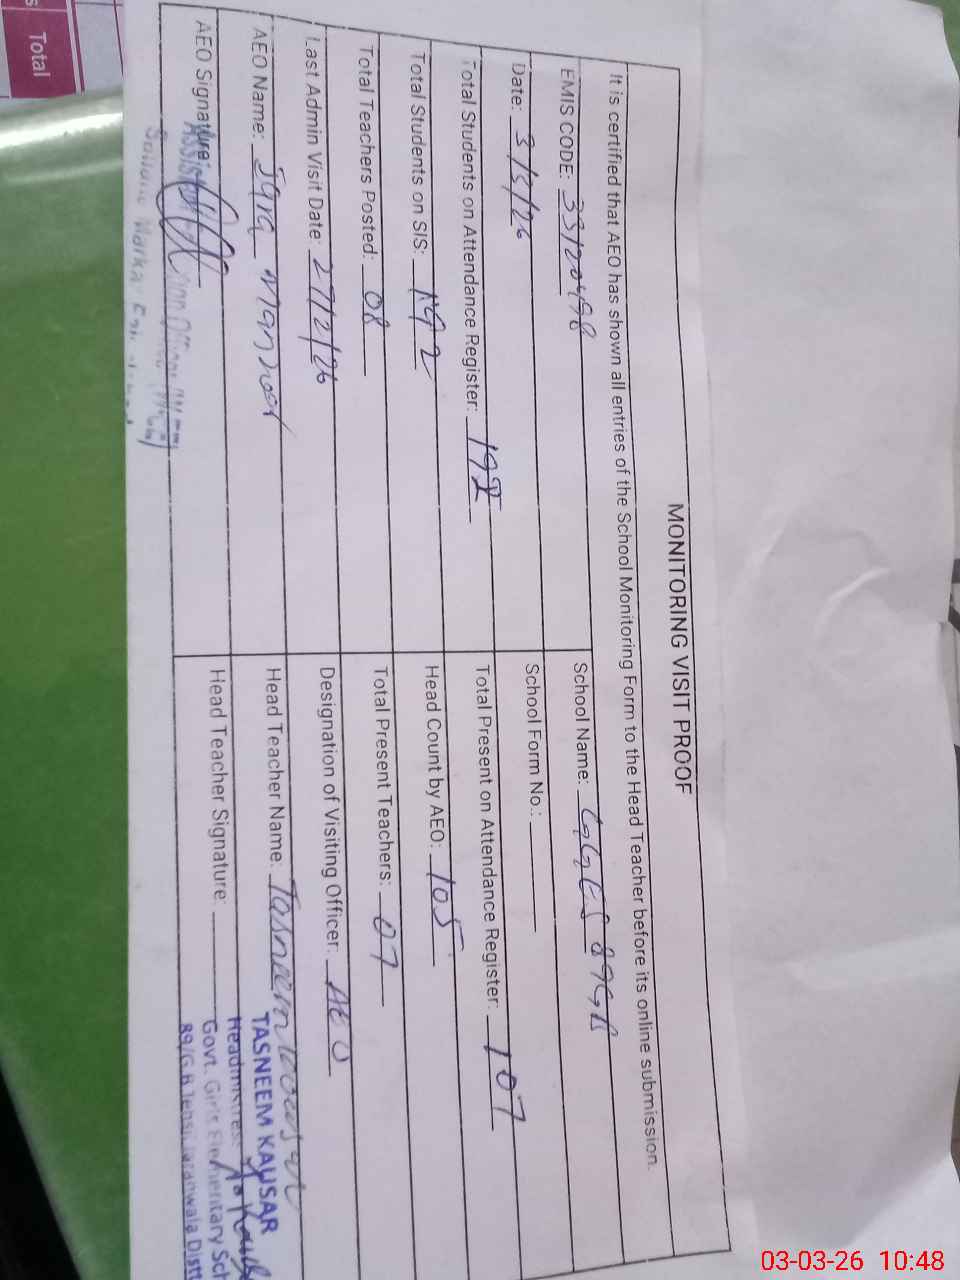 MONITORING VISIT PROOF
It is certified that AEO has shown all entries of the School Monitoring Form to the Head Teacher before its online submission.
EMIS CODE: 33120498
School Name: GGES 89GB
Date: 3/3/26
School Form No.:
Total Students on Attendance Register: 192
Total Present on Attendance Register: 107
Total Students on SIS: 192
Head Count by AEO: 105
Total Teachers Posted: 08
Total Present Teachers: 07
Last Admin Visit Date: 27/2/26
Designation of Visiting Officer: AEO
AEO Name: Iqra Manzoor
Head Teacher Name: Tasneem Kousar
AEO Signature:
Head Teacher Signature:
TASNEEM KAUSAR
Headmistress
Govt. Girls Elementary Sch
89/G.B Tehsil Jaranwala Distt
Total
03-03-26 10:48